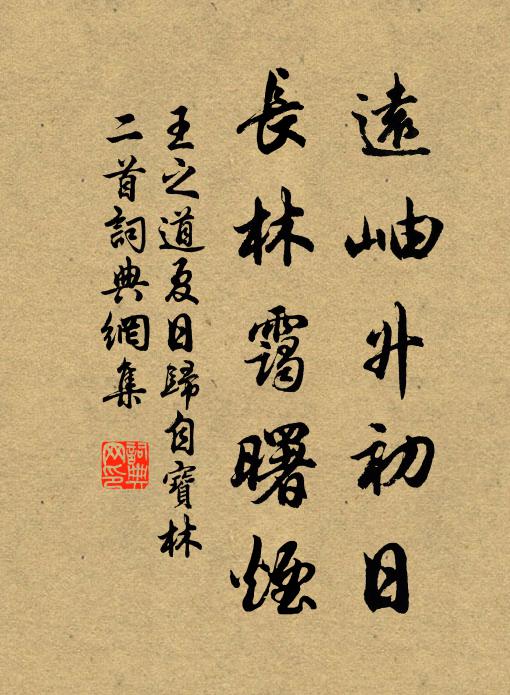 遠岫升初日
長林靄曙煙
王之道夏日歸自寶林
二首詞典網集
詞典網印